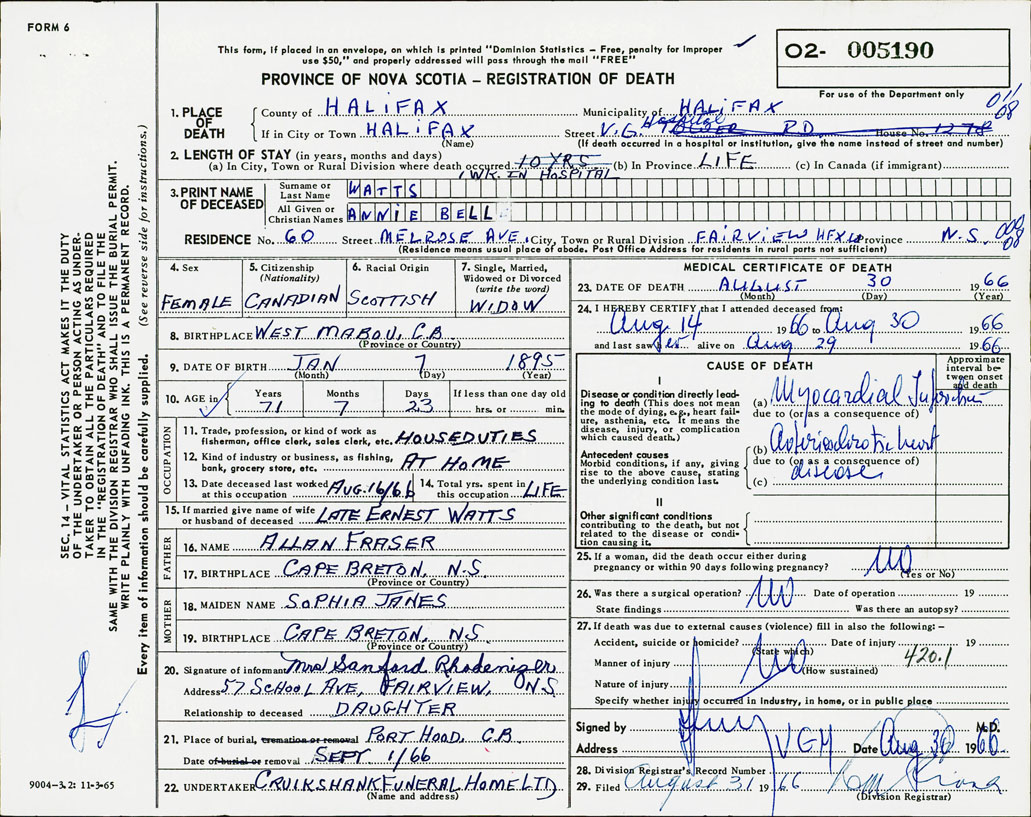 FORM 6
This form, if placed in an envelope, on which is printed "Dominion Statistics – Free, penalty for improper
use $50," and properly addressed will pass through the mail "FREE"
02- 005190
PROVINCE OF NOVA SCOTIA – REGISTRATION OF DEATH
For use of the Department only
1. PLACE OF DEATH
County of HALIFAX Municipality of HALIFAX 011/08
If in City or Town HALIFAX Street V.G. Hospital RD. House No. 1278
(Name) (If death occurred in a hospital or institution, give the name instead of street and number)
2. LENGTH OF STAY (in years, months and days)
(a) In City, Town or Rural Division where death occurred 10 YRS (b) In Province LIFE (c) In Canada (if immigrant)
1 WK. IN HOSPITAL
3. PRINT NAME OF DECEASED
Surname or Last Name WATTS
All Given or Christian Names ANNIE BELL
RESIDENCE No. 60 Street MELROSE AVE. City, Town or Rural Division FAIRVIEW HFX Province N.S.
(Residence means usual place of abode. Post Office Address for residents in rural parts not sufficient)
4. Sex
FEMALE
5. Citizenship
(Nationality)
CANADIAN
6. Racial Origin
SCOTTISH
7. Single, Married,
Widowed or Divorced
(write the word)
WIDOW
8. BIRTHPLACE WEST MABOU, C.B.
(Province or Country)
9. DATE OF BIRTH JAN 7 1895
(Month) (Day) (Year)
10. AGE in
Years Months Days If less than one day old
71 7 23 hrs. or min.
OCCUPATION
11. Trade, profession, or kind of work as
fisherman, office clerk, sales clerk, etc. HOUSEDUTIES
12. Kind of industry or business, as fishing,
bank, grocery store, etc. AT HOME
13. Date deceased last worked
at this occupation AUG. 16/66
14. Total yrs. spent in
this occupation LIFE
15. If married give name of wife
or husband of deceased LATE ERNEST WATTS
FATHER
16. NAME ALLAN FRASER
17. BIRTHPLACE CAPE BRETON, N.S.
(Province or Country)
MOTHER
18. MAIDEN NAME SOPHIA JANES
19. BIRTHPLACE CAPE BRETON, N.S.
(Province or Country)
20. Signature of informant Mrs Sanford Rhodenizer
Address 57 SCHOOL AVE, FAIRVIEW, N.S.
Relationship to deceased DAUGHTER
21. Place of burial, cremation or removal PORT HOOD, C.B.
Date of burial or removal SEPT 1/66
22. UNDERTAKER CRUIKSHANK FUNERAL HOME LTD
(Name and address)
MEDICAL CERTIFICATE OF DEATH
23. DATE OF DEATH AUGUST 30 1966
(Month) (Day) (Year)
24. I HEREBY CERTIFY that I attended deceased from:
Aug 14 1966 to Aug 30 1966
and last saw alive on Aug 29 1966
CAUSE OF DEATH
Approximate
interval be-
tween onset
and death
I
Disease or condition directly lead-
ing to death (This does not mean
the mode of dying, e.g., heart fail-
ure, asthenia, etc. It means the
disease, injury, or complication
which caused death.)
(a) Myocardial Infarction
due to (or as a consequence of)
Antecedent causes
Morbid conditions, if any, giving
rise to the above cause, stating
the underlying condition last.
(b) Arteriosclerotic heart
due to (or as a consequence of)
disease
(c)
II
Other significant conditions
contributing to the death, but not
related to the disease or condi-
tion causing it.
25. If a woman, did the death occur either during
pregnancy or within 90 days following pregnancy? No
(Yes or No)
26. Was there a surgical operation? No Date of operation 19
State findings Was there an autopsy?
27. If death was due to external causes (violence) fill in also the following: –
Accident, suicide or homicide? Date of injury 19
(State which)
Manner of injury No 420.1
(How sustained)
Nature of injury
Specify whether injury occurred in industry, in home, or in public place
Signed by M.D.
Address VGH Date Aug 30 1966
28. Division Registrar's Record Number
29. Filed August 31 1966
(Division Registrar)
SEC. 14 – VITAL STATISTICS ACT MAKES IT THE DUTY
OF THE UNDERTAKER OR PERSON ACTING AS UNDER-
TAKER TO OBTAIN ALL THE PARTICULARS REQUIRED
IN THE "REGISTRATION OF DEATH" AND TO FILE THE
SAME WITH THE DIVISION REGISTRAR WHO SHALL ISSUE THE BURIAL PERMIT.
WRITE PLAINLY WITH UNFADING INK. THIS IS A PERMANENT RECORD.
Every item of information should be carefully supplied. (See reverse side for instructions.)
9004–3.2: 11-3-65